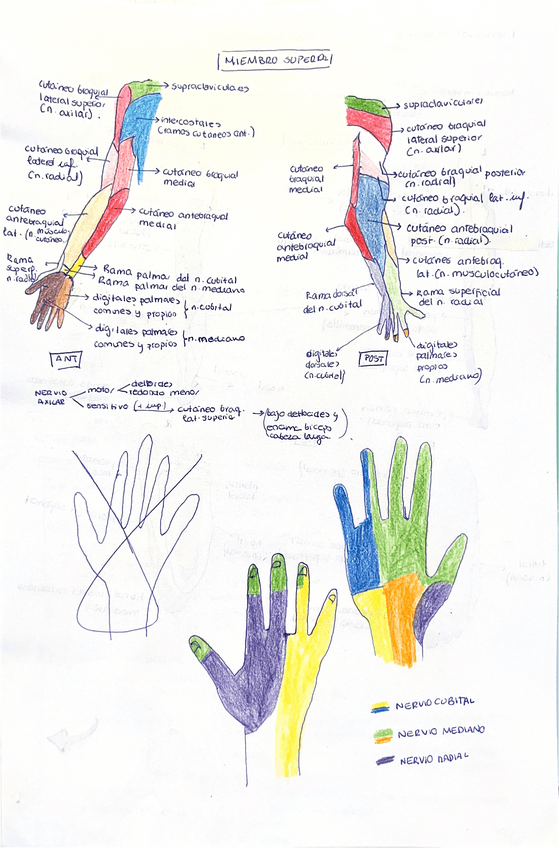 MIEMBRO SUPERIOR
cutáneo braquial
lateral superior
(n. axilar).
supraclaviculares
intercostales
(ramos cutáneos ant.)
cutáneo braquial
lateral inf.
(n. radial)
cutáneo braquial
medial
cutáneo
antebraquial
lat. (n. músculo-
cutáneo)
cutáneo antebraquial
medial
Rama
superf.
n. radial
Rama palmar del n. cubital
Rama palmar del n. mediano
digitales palmares
comunes y propios } n. cubital
digitales palmares
comunes y propios } n. mediano
ANT
supraclaviculares
cutáneo braquial
lateral superior
(n. axilar)
cutáneo
braquial
medial
cutáneo braquial posterior
(n. radial)
cutáneo braquial lat. inf.
(n. radial).
cutáneo
antebraquial
medial
cutáneo antebraquial
post. (n. radial).
cutáneo antebraq.
lat. (n. musculocutáneo)
Rama dorsal
del n. cubital
Rama superficial
del n. radial
digitales
dorsales
(n. cubital)
POST
digitales
palmares
propios
(n. mediano)
NERVIO
AXILAR
motor
deltoides
redondo menor
sensitivo (+ imp) → cutáneo braq.
lat. superior
→ bajo deltoides y
encima bíceps
cabeza larga
NERVIO CUBITAL
NERVIO MEDIANO
NERVIO RADIAL